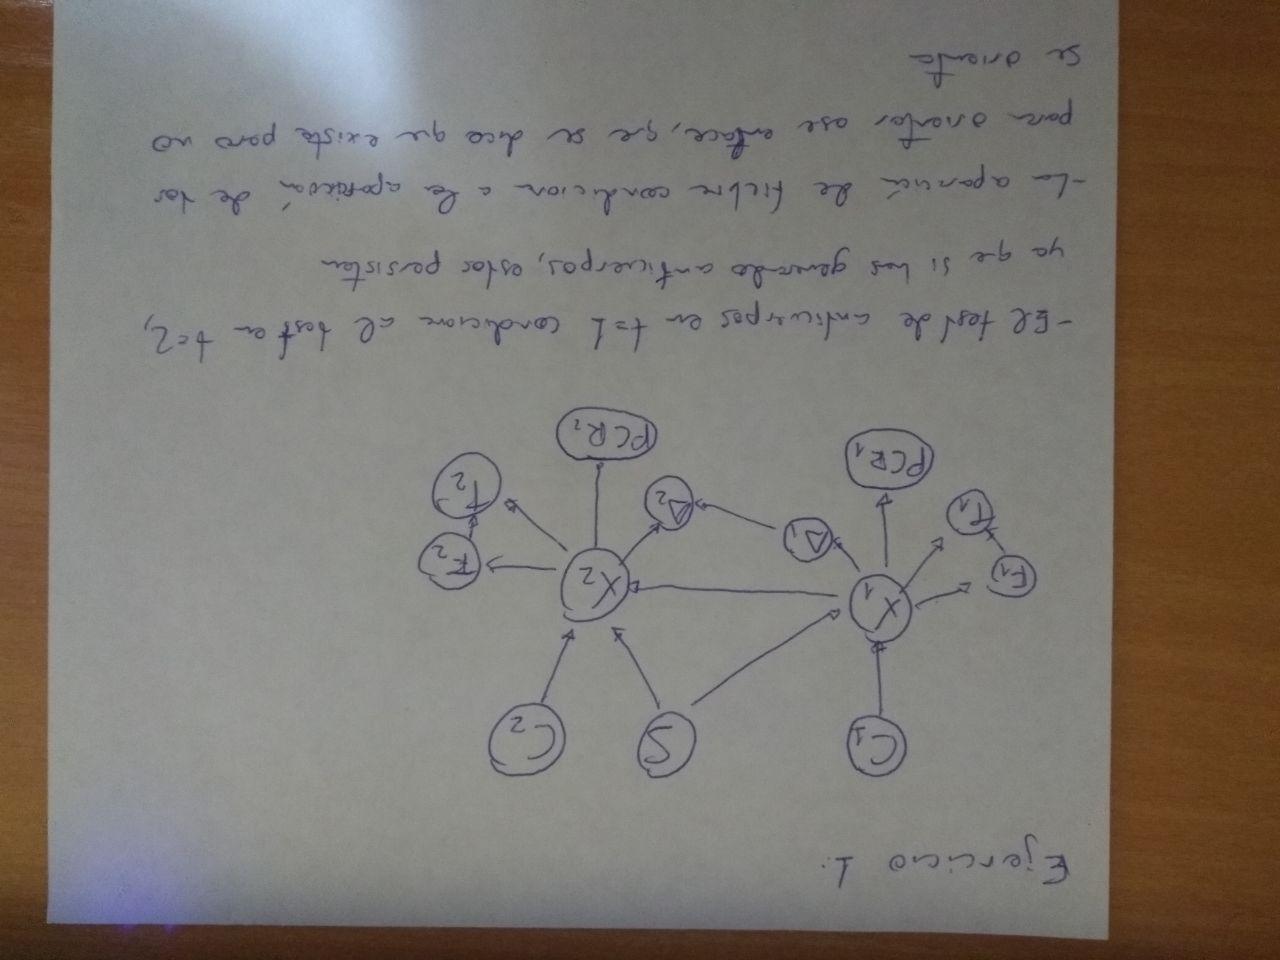 Ejercicio 1.
C1 S C2
X1 X2
F1 T1 A1 A2 F2 T2
PCR1 PCR2
-El test de anticuerpos en t=1 condiciona al test en t=2,
ya que si has generado anticuerpos, estos persisten
-La aparició de fiebre condicion a la aparición de tos
para orientar ese enlace, que se dice que existe pero no
se orienta